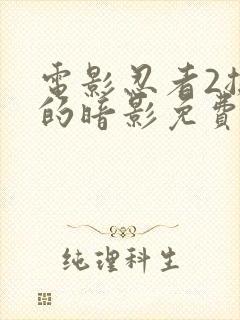 電影忍者2
的暗影免費
纯理科生